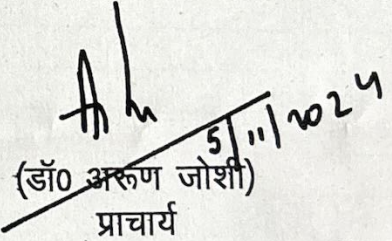 5/11/2024
(डॉ0 अरूण जोशी)
प्राचार्य